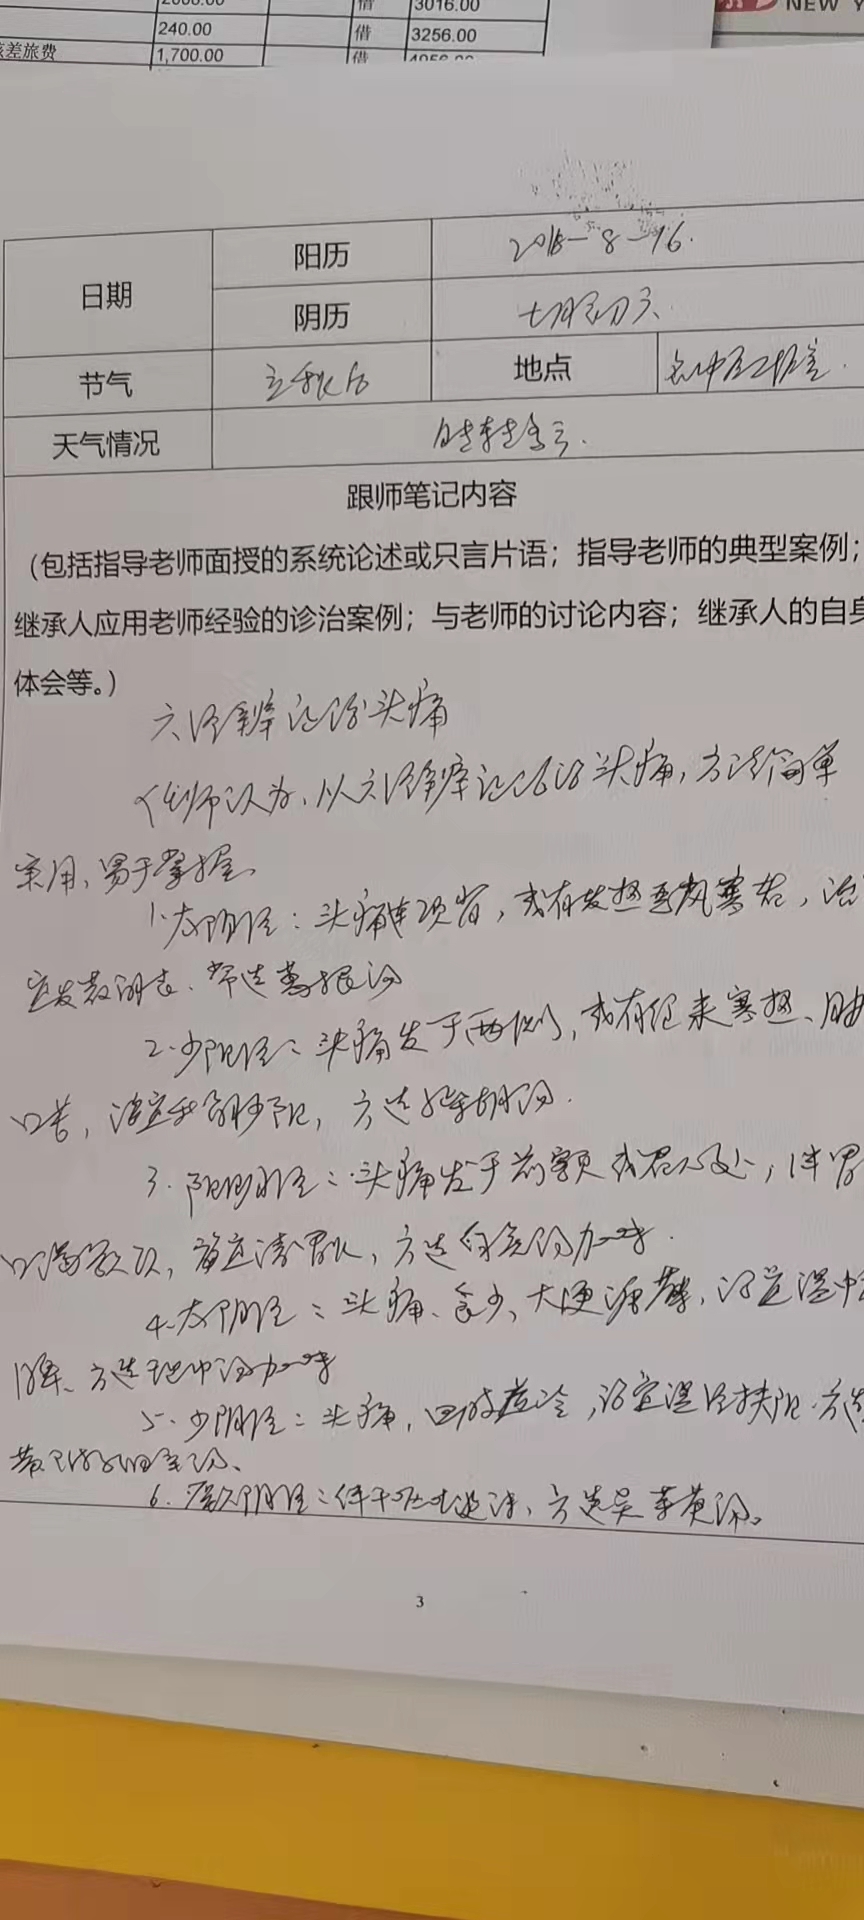 2000.00 借 3016.00
240.00 借 3256.00
差旅费 1,700.00 借 4956.00
NEW Y
日期 阳历 2018-8-16.
阴历 七月初六
节气 立秋后 地点 名中医工作室.
天气情况 晴转多云.
跟师笔记内容
（包括指导老师面授的系统论述或只言片语；指导老师的典型案例；
继承人应用老师经验的诊治案例；与老师的讨论内容；继承人的自身
体会等。）
六经辨证治头痛
师认为，以六经辨证论治头痛，方法简单
实用，易于掌握
1.太阳经：头痛连项背，或有发热恶风寒者，治
宜发散解表.常选葛根汤
2.少阳经：头痛发于两侧，或有往来寒热、
口苦，治宜和解少阳，方选柴胡汤.
3.阳明经：头痛发于前额或眉心处，伴胃
口渴欲饮，治宜清胃火，方选白虎汤加味.
4.太阴经：头痛、食少、大便溏薄，治宜温中
方选理中汤加味
5.少阴经：头痛，四肢逆冷，治宜温经扶阳.方选
麻黄附子细辛汤.
6.厥阴经：伴干呕吐涎沫，方选吴茱萸汤。
3